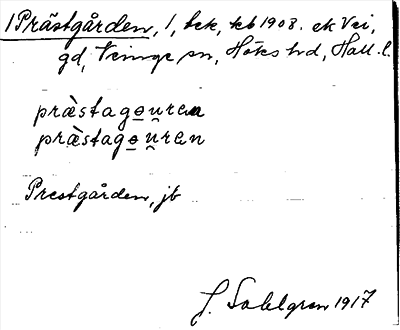 1 Prästgården, 1, bek, kb 1908. ek Vei,
gd, Veinge sn, Höks hd, Hall. l.
præ̀stagɵu̯ren
præ̀stagɵu̯ren
Prestgården, jb
J. Sahlgren 1917